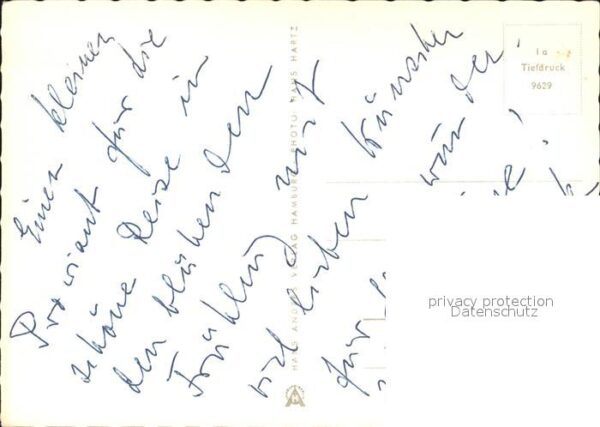 Einen kleinen
Proviant für die
schöne Reise in
den blühenden
Frühling mit
viel lieben Wünschen
für
HANS ANDRES VERLAG HAMBURG PHOTO: HANS HARTZ
1a
Tiefdruck
9629
privacy protection
Datenschutz